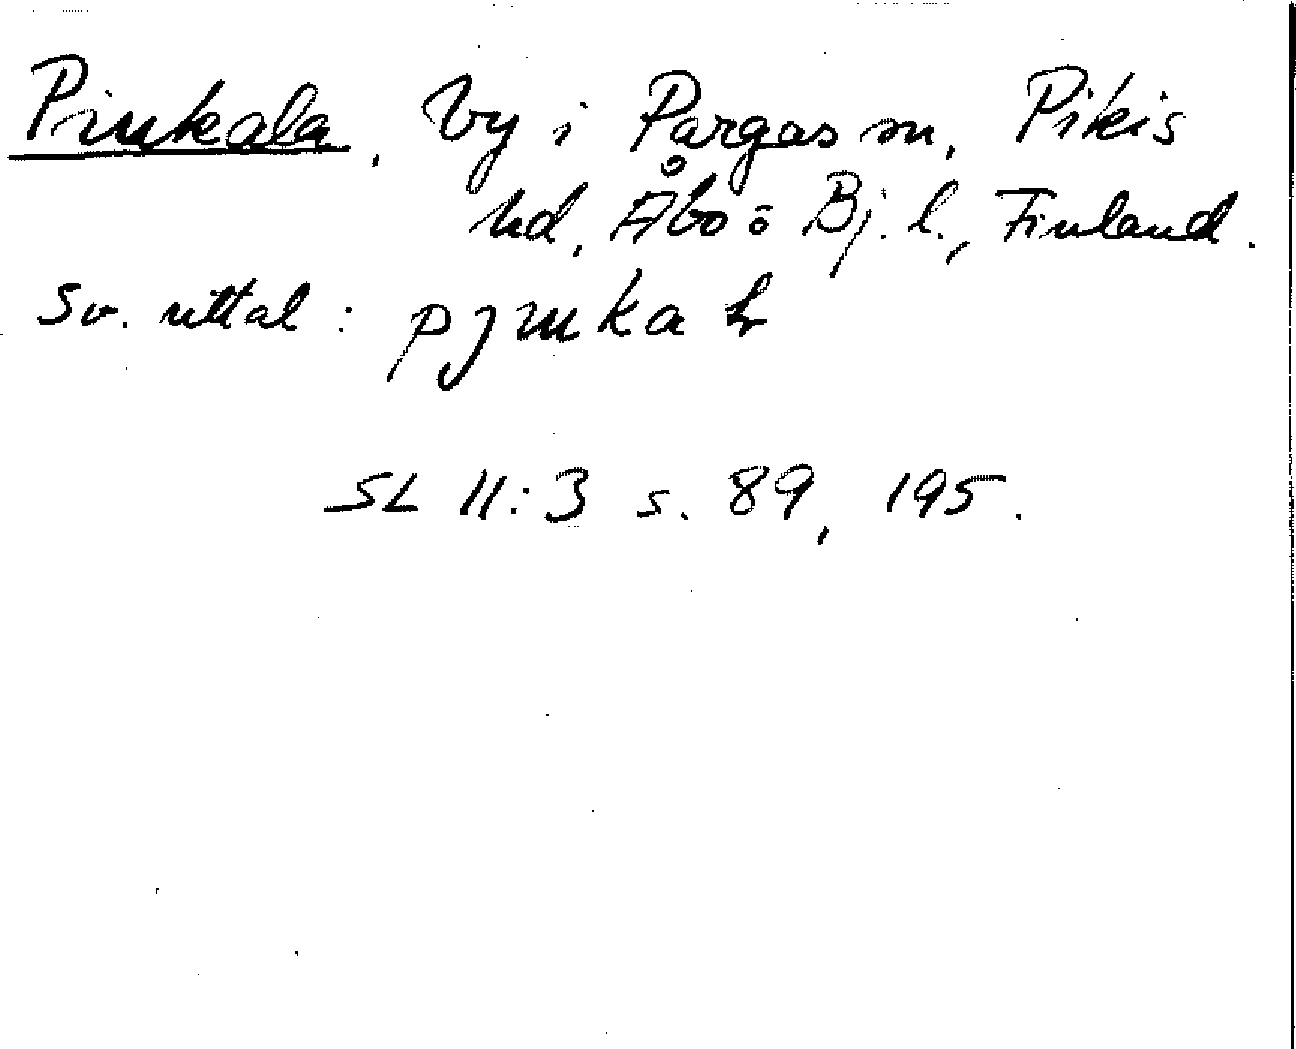 Piukala, by i Pargas sn, Pikis
hd, Åbo o Bj. l., Finland.
Sv. uttal:
SL 11:3 s. 89, 195.